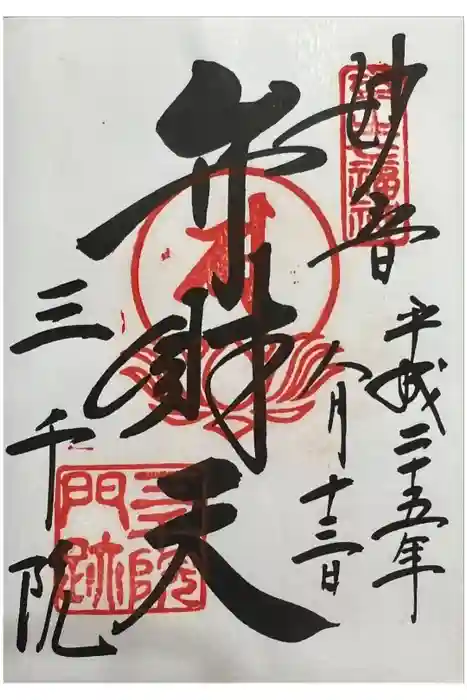 妙音
平成二十五年
八月十三日
弁財天
三千院
三千院
門跡